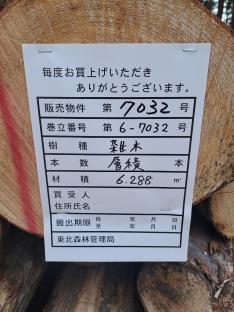 毎度お買上げいただき
ありがとうございます。
販売物件 第7032号
巻立番号 第6-7032号
樹種 雑木
本数 層積 本
材積 6.288 m³
買受人
住所氏名
搬出期限 自 年 月 日
至 年 月 日
東北森林管理局